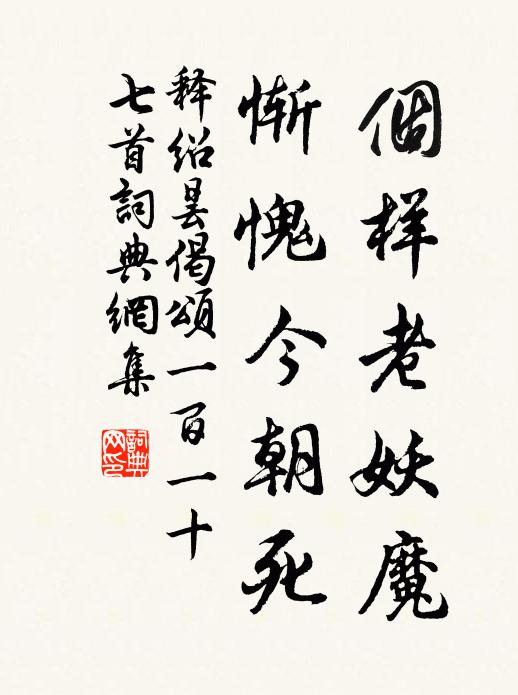 個样老妖魔
慚愧今朝死
释绍昙偈頌一百一十
七首詞典網集
詞典网印